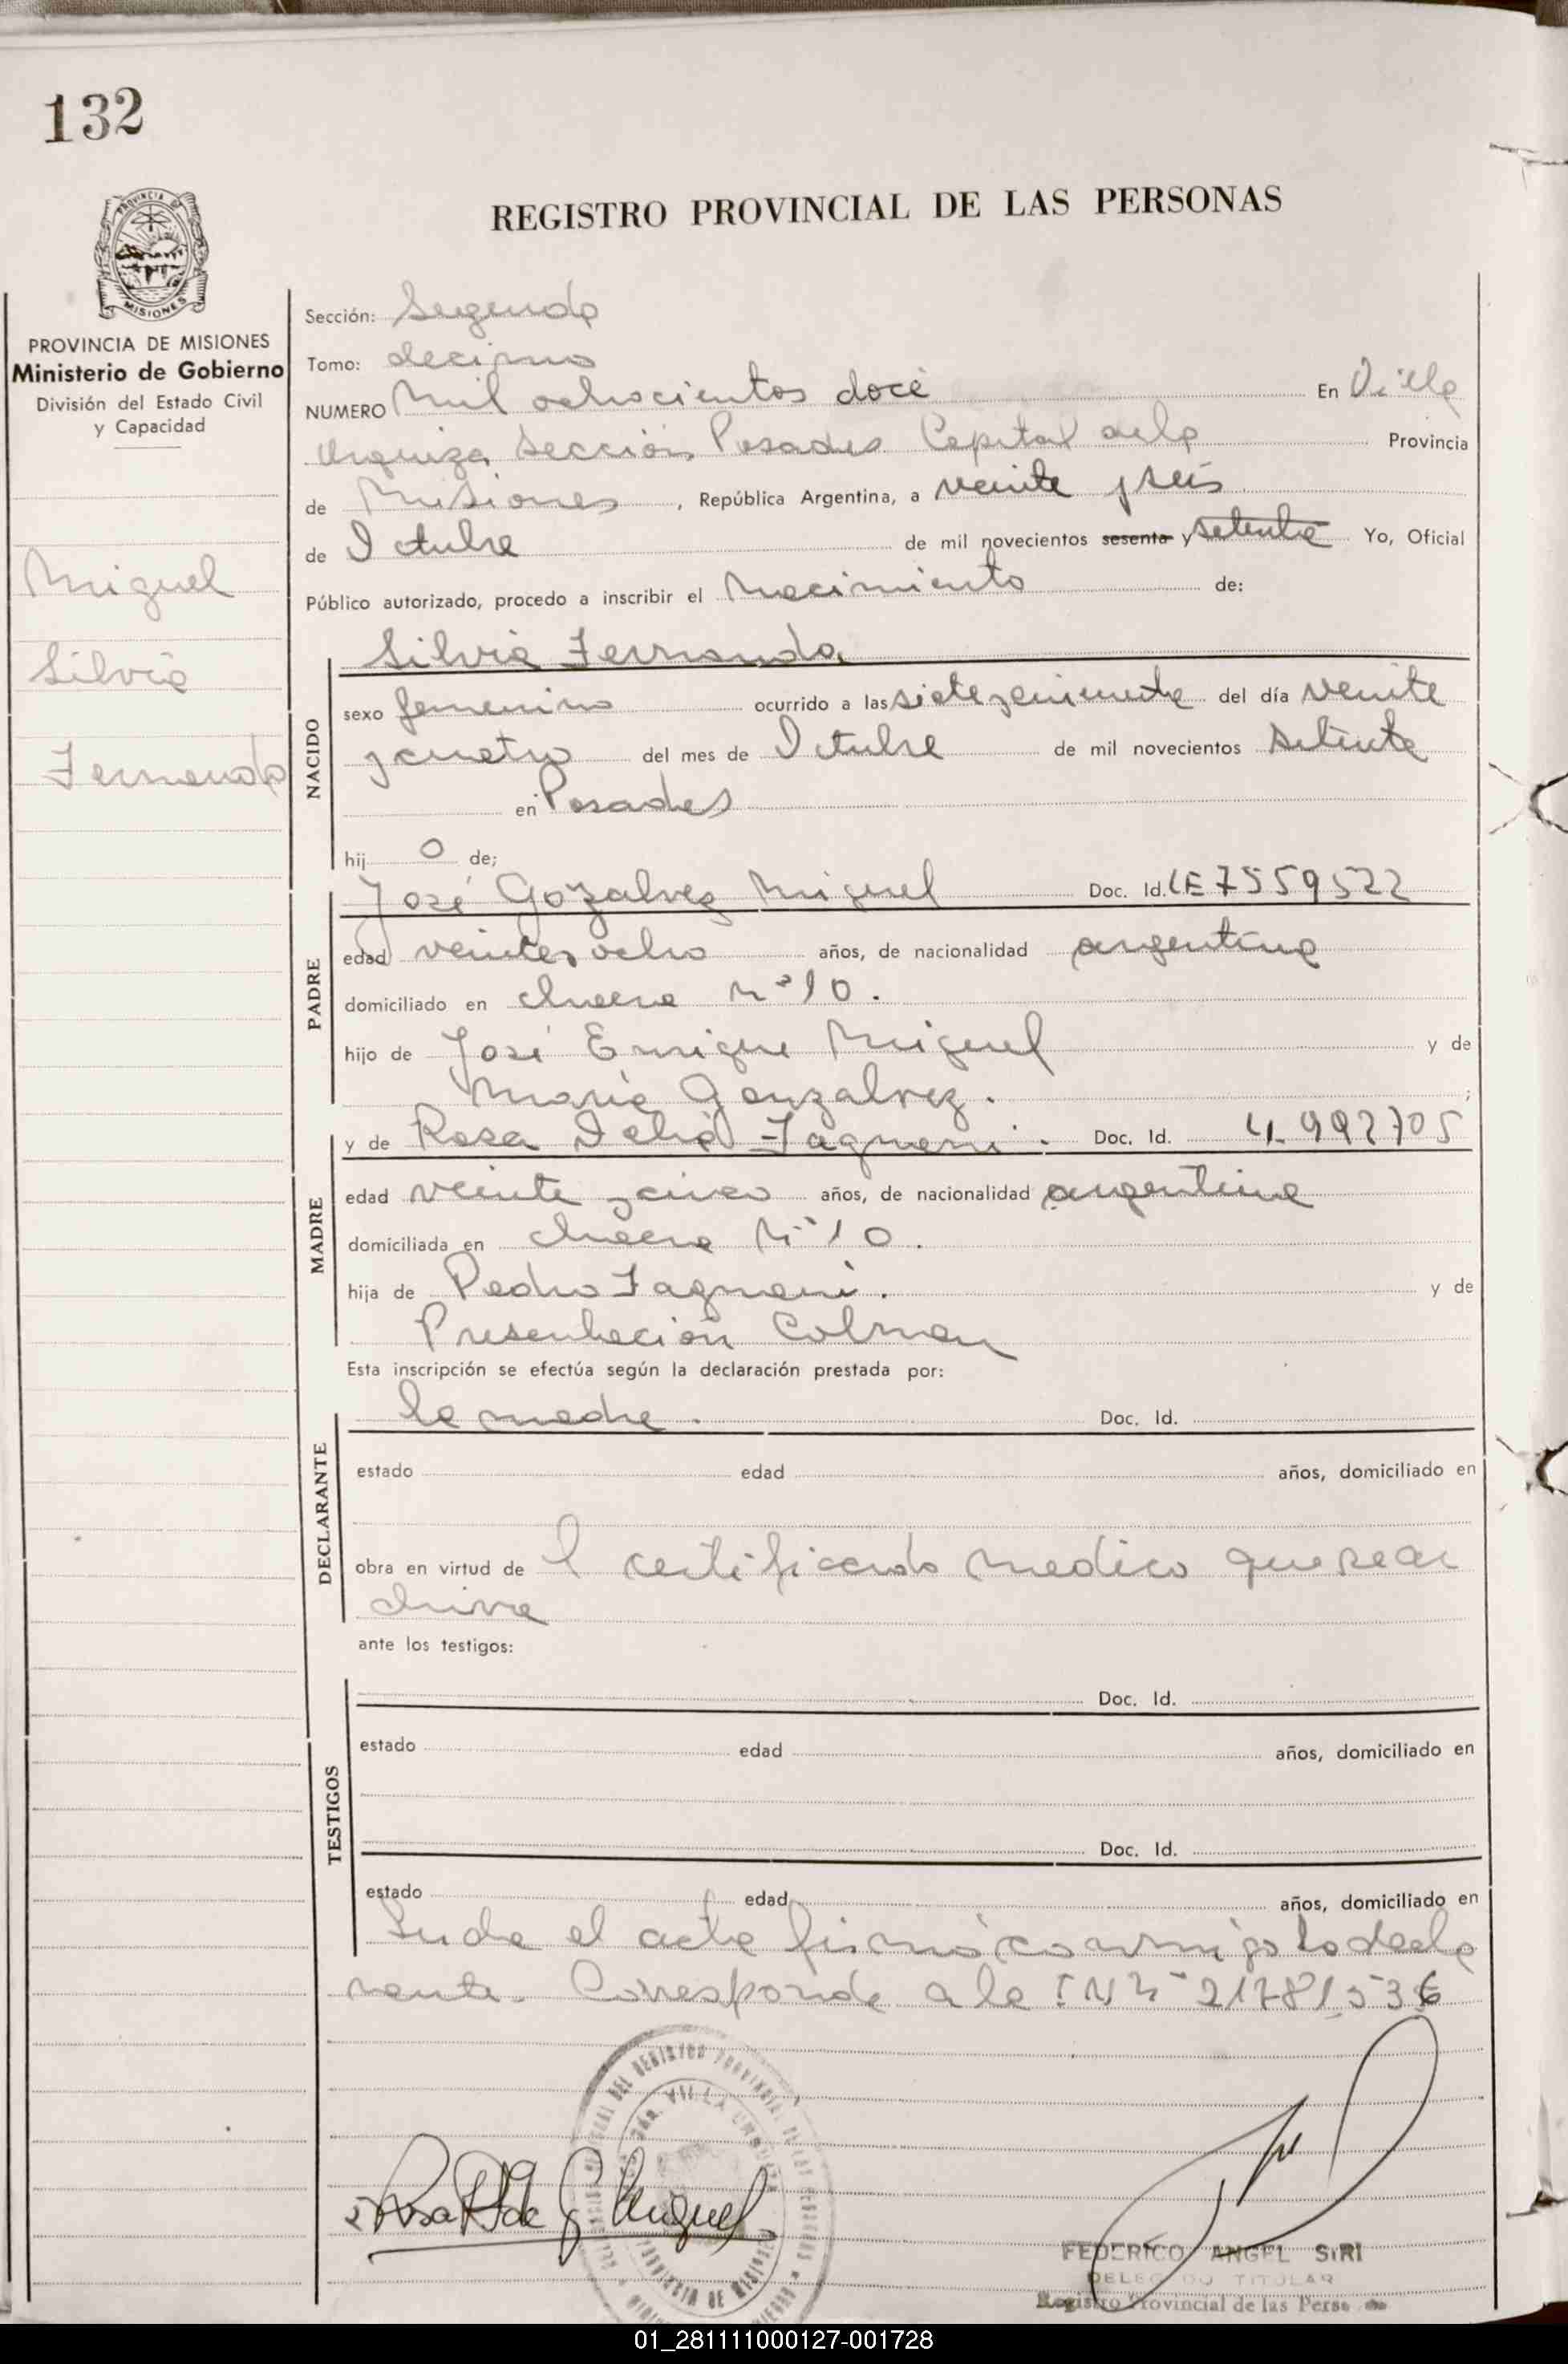 132
PROVINCIA DE MISIONES
Ministerio de Gobierno
División del Estado Civil
y Capacidad
Miguel
Silvia
Fernanda
REGISTRO PROVINCIAL DE LAS PERSONAS
Sección: Segunda
Tomo: decimo
NUMERO Mil ochocientos doce En Villa
Urquiza Sección Posadas Capital de la Provincia
de Misiones, República Argentina, a veinte y seis
de Octubre de mil novecientos sesenta y setenta Yo, Oficial
Público autorizado, procedo a inscribir el Nacimiento de:
NACIDO
Silvia Fernanda
sexo femenino ocurrido a las siete y del día veinte
y cuatro del mes de Octubre de mil novecientos setenta
en Posadas
hij o de;
PADRE
José Gozalvez Miguel Doc. Id. LE 7559522
edad veinte y ocho años, de nacionalidad argentina
domiciliado en chacra Nº 10.
hijo de José Enrique Miguel y de
María Gonzalvez. ;
MADRE
y de Rosa Delia Fagneni. Doc. Id. 4.992705
edad veinte y cinco años, de nacionalidad argentina
domiciliada en chacra Nº 10.
hija de Pedro Fagneni. y de
Presentación Colman
Esta inscripción se efectúa según la declaración prestada por:
DECLARANTE
la madre. Doc. Id.
estado edad años, domiciliado en
obra en virtud de l certificado medico que se ar
chiva
ante los testigos:
TESTIGOS
Doc. Id.
estado edad años, domiciliado en
Doc. Id.
estado edad años, domiciliado en
el acta firmó conmigo la decla
rante. Corresponde a la Nº 21781536
Rosa de G Miguel
FEDERICO ANGEL SIRI
DELEGADO TITULAR
Registro Provincial de las Perso
01_281111000127-001728